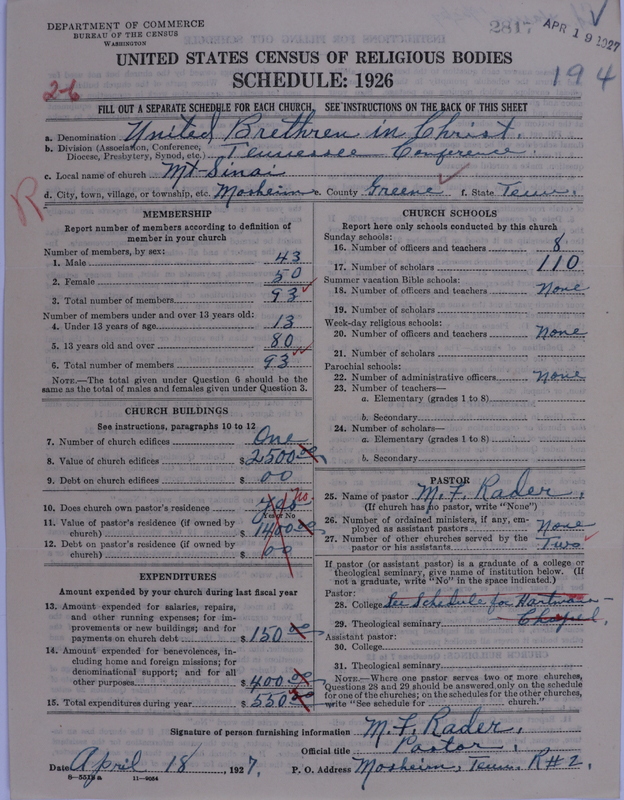 DEPARTMENT OF COMMERCE
BUREAU OF THE CENSUS
WASHINGTON
2817
APR 19 1927
UNITED STATES CENSUS OF RELIGIOUS BODIES
SCHEDULE: 1926
194
26
FILL OUT A SEPARATE SCHEDULE FOR EACH CHURCH. SEE INSTRUCTIONS ON THE BACK OF THIS SHEET
a. Denomination United Brethren in Christ.
b. Division (Association, Conference, Diocese, Presbytery, Synod, etc.) Tennessee Conference.
c. Local name of church Mt-Sinai
d. City, town, village, or township, etc. Mosheim e. County Greene f. State Tenn.
R
MEMBERSHIP
Report number of members according to definition of member in your church
Number of members, by sex:
1. Male 43
2. Female 50
3. Total number of members 93
Number of members under and over 13 years old:
4. Under 13 years of age 13
5. 13 years old and over 80
6. Total number of members 93
NOTE.—The total given under Question 6 should be the same as the total of males and females given under Question 3.
CHURCH BUILDINGS
See instructions, paragraphs 10 to 12
7. Number of church edifices One
8. Value of church edifices $ 2500.00
9. Debt on church edifices $ 00
10. Does church own pastor's residence No.
Yes or No
11. Value of pastor's residence (if owned by church) $ 1400.00
12. Debt on pastor's residence (if owned by church) $ 00
EXPENDITURES
Amount expended by your church during last fiscal year
13. Amount expended for salaries, repairs, and other running expenses; for improvements or new buildings; and for payments on church debt $ 150.00
14. Amount expended for benevolences, including home and foreign missions; for denominational support; and for all other purposes $ 400.00
15. Total expenditures during year $ 550.00
CHURCH SCHOOLS
Report here only schools conducted by this church
Sunday schools:
16. Number of officers and teachers 8
17. Number of scholars 110
Summer vacation Bible schools:
18. Number of officers and teachers None
19. Number of scholars
Week-day religious schools:
20. Number of officers and teachers None
21. Number of scholars
Parochial schools:
22. Number of administrative officers None
23. Number of teachers—
a. Elementary (grades 1 to 8)
b. Secondary
24. Number of scholars—
a. Elementary (grades 1 to 8)
b. Secondary
PASTOR
25. Name of pastor M. F. Rader.
(If church has no pastor, write "None")
26. Number of ordained ministers, if any, employed as assistant pastors None
27. Number of other churches served by the pastor or his assistants Two
If pastor (or assistant pastor) is a graduate of a college or theological seminary, give name of institution below. (If not a graduate, write "No" in the space indicated.)
Pastor:
28. College See Schedule for Hartman-
29. Theological seminary Chapel.
Assistant pastor:
30. College
31. Theological seminary
NOTE.—Where one pastor serves two or more churches, Questions 28 and 29 should be answered only on the schedule for one of the churches; on the schedules for the other churches, write "See schedule for ........ church."
Signature of person furnishing information M. F. Rader.
Official title Pastor.
Date April 18, 1927. P. O. Address Mosheim, Tenn. R#2.
8—5518a 11—9064